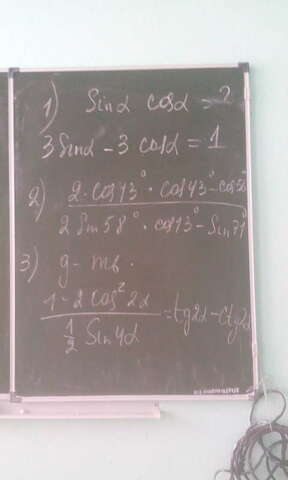 1) Sinα cosα = ?
3Sinα - 3 cosα = 1
2) 2·cos13°·cos43°-cos56°
2Sin58°·cos13°-Sin71°
3) g-mb.
1-2cos²2α
1/2 Sin4α
=tg2α-ctg2α